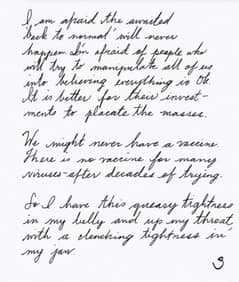 I am afraid the awaited
back to normal' will never
happen. I'm afraid of people who
will try to manipulate all of us
into believing everything is Ok.
It is better for their invest-
ments to placate the masses.
We might never have a vaccine.
There is no vaccine for many
viruses-after decades of trying.
So I have this greasy tightness
in my belly and up my throat
with a clenching tightness in
my jaw.